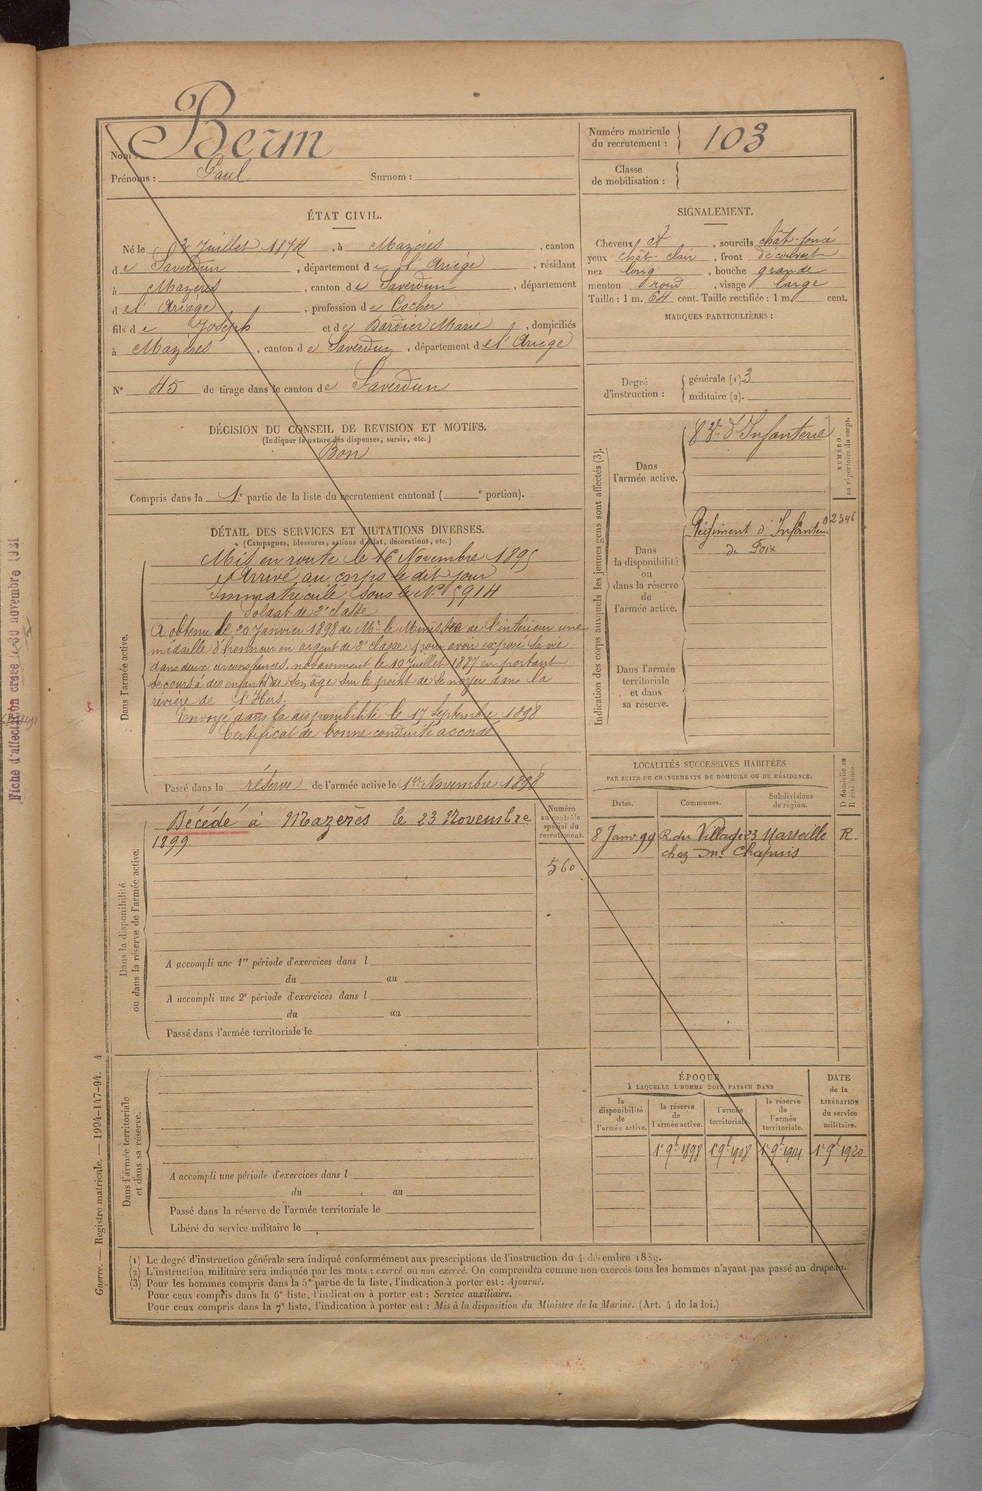 Nom : Beun
Prénoms : Paul Surnom :
Numéro matricule du recrutement : 103
Classe de mobilisation :
ÉTAT CIVIL.
Né le 3 Juillet 1874, à Mazères, canton
de Saverdun, département de l'Ariége, résidant
à Mazères, canton de Saverdun, département
de l'Ariège, profession de Cocher
fils de Joseph et de Bardier Marie, domiciliés
à Mazères, canton de Saverdun, département de l'Ariège
N° 45 de tirage dans le canton de Saverdun
DÉCISION DU CONSEIL DE REVISION ET MOTIFS.
(Indiquer la nature des dispenses, sursis, etc.)
Bon
Compris dans la 1e partie de la liste du recrutement cantonal ( e portion).
SIGNALEMENT.
Cheveux ct, sourcils chât-foncé
yeux chât-clair, front découvert
nez long, bouche grande
menton rond, visage large
Taille : 1 m. 64 cent. Taille rectifiée : 1 m. cent.
MARQUES PARTICULIÈRES :
Degré d'instruction : générale (1) 3
militaire (2).
DÉTAIL DES SERVICES ET MUTATIONS DIVERSES.
(Campagnes, blessures, actions d'éclat, décorations, etc.)
Dans l'armée active.
Mis en route le 16 Novembre 1895
Arrivé au corps le dit jour
Immatriculé sous le N° 5914
Soldat de 2e classe
A obtenu le 20 Janvier 1898 de Mr le Ministre de l'intérieur une
médaille d'honneur en argent de 2e classe pour avoir exposé sa vie
dans deux circonstances, notamment le 10 Juillet 1887 en portant
secours à des enfants de son âge sur le point de se noyer dans la
rivière de l'Hers.
Envoyé dans la disponibilité le 17 Septembre 1898
Certificat de bonne conduite accordé
Passé dans la réserve de l'armée active le 1er Novembre 1898
Dans la disponibilité ou dans la réserve de l'armée active.
Décédé à Mazères le 23 Novembre
1899
Numéro au contrôle spécial du recrutement.
560
A accompli une 1re période d'exercices dans l
du au
A accompli une 2e période d'exercices dans l
du au
Passé dans l'armée territoriale le
Dans l'armée territoriale et dans sa réserve.
A accompli une période d'exercices dans l
du au
Passé dans la réserve de l'armée territoriale le
Libéré du service militaire le
Indication des corps auxquels les jeunes gens sont affectés (3).
NUMÉRO au répertoire du corps.
Dans l'armée active.
83e d'Infanterie
Dans la disponibilité ou dans la réserve de l'armée active.
Régiment d'Infanterie 02346
de Foix
Dans l'armée territoriale et dans sa réserve.
LOCALITÉS SUCCESSIVES HABITÉES
PAR SUITE DE CHANGEMENTS DE DOMICILE OU DE RÉSIDENCE.
Dates. Communes. Subdivisions de région. D domicile ou R résidence.
8 Janv. 99 R. du Village 23 Marseille R.
chez Me Chapuis
ÉPOQUE
À LAQUELLE L'HOMME DOIT PASSER DANS
la disponibilité de l'armée active.
la réserve de l'armée active.
l'armée territoriale.
la réserve de l'armée territoriale.
DATE de la LIBÉRATION du service militaire.
1er 9bre 1898 1er 9bre 1908 1er 9bre 1914 1er 9bre 1920
(1) Le degré d'instruction générale sera indiqué conformément aux prescriptions de l'instruction du 4 décembre 1889.
(2) L'instruction militaire sera indiquée par les mots : exercé ou non exercé. On comprendra comme non exercés tous les hommes n'ayant pas passé au drapeau.
(3) Pour les hommes compris dans la 5e partie de la liste, l'indication à porter est : Ajourné.
Pour ceux compris dans la 6e liste, l'indication à porter est : Service auxiliaire.
Pour ceux compris dans la 7e liste, l'indication à porter est : Mis à la disposition du Ministre de la Marine. (Art. 4 de la loi.)
Guerre. — Registre matricule. — 1994-147-94. 4
Fiche d'affectation créée le 30 novembre 1921